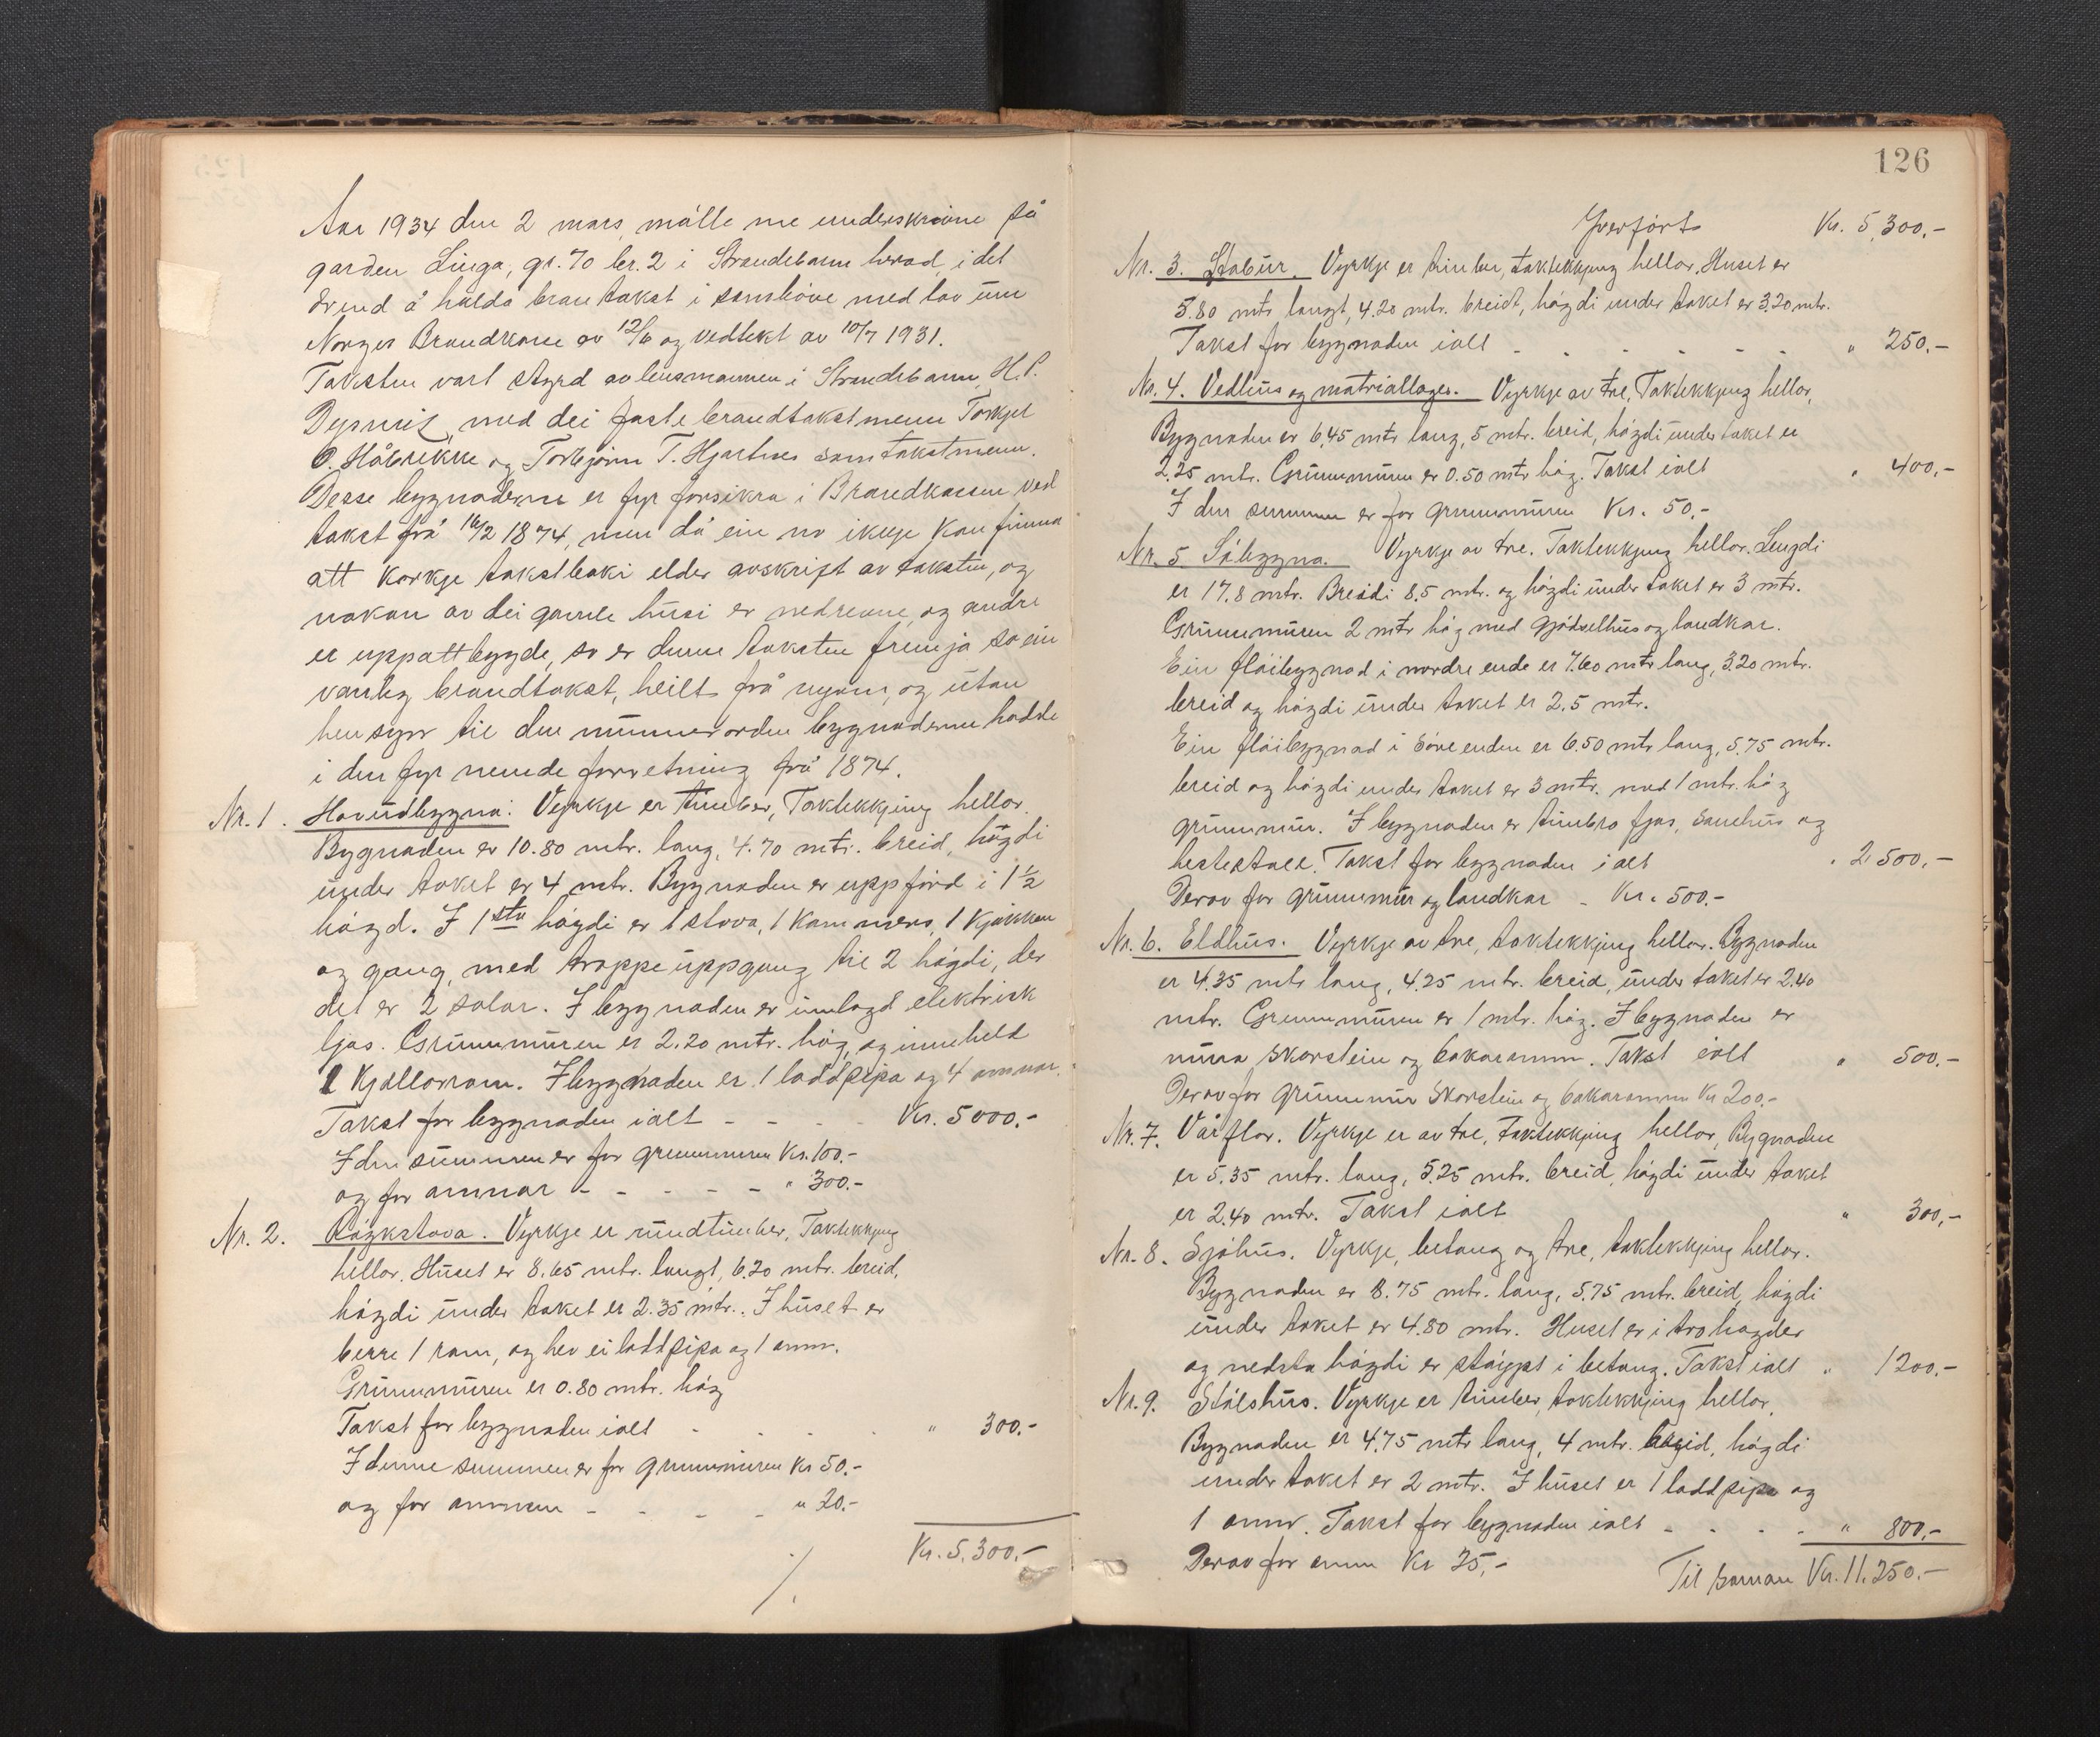 Aar 1934 den 2 mars, møtte me underskrivne på
garden Linga, gr. 70 br. 2 i Strandebarm herad, i det
ørend å halda brantakst i samhøve med lov um
Norges Brandkasse av 12/6 og vedtekt av 10/7 1931.
Taksten vart styrd av lensmannen i Strandebarm, H. P.
med dei faste brandtakstmenn Torkjel
O. Håbrekke og Torbjørn T. Hjartnes som takstmenn.
Desse bygnaderne er fyr forsikra i Brandkassen ved
takst frå 16/2 1874, men då ein no ikkje kan finna
att korkje takstboki elder avskrift av taksten, og
nokon av dei gamle husi er nedrevne, og andre
er uppattbygde, so er denne taksten fremja so ein
vanleg brandtakst, heilt frå nyom, og utan
hensyn til den nummerorden bygnaderne hadde
i den fyr nemde forretning frå 1874.
Nr. 1. Hovudbygna: Vyrkje er timber, Taktekkjing hellor.
Bygnaden er 10.80 mtr. lang, 4.70 mtr. breid, høgdi
under taket er 4 mtr. Bygnaden er uppførd i 1½
høgd. I 1ste høgdi er 1 stova, 1 kammers, 1 kjøkken
og gang, med trappeuppgang til 2 høgdi, der
det er 2 salar. I bygnaden er innlagd elektrisk
ljos. Grunnmuren er 2.20 mtr. høg, og inneheld
1 kjellarrom. I bygnaden er 1 loddpipa og 4 omnar.
Takst for bygnaden ialt - - - - Kr. 5000.-
I den summen er for grunnmuren Kr. 100.-
og for omnar - - - - - " 300.-
Nr. 2. Røykstova. Vyrkje er rundtimber, Taktekkjing
hellor. Huset er 8.65 mtr. langt, 6.20 mtr. breid,
høgdi under taket er 2.35 mtr.. I huset er
berre 1 rom, og hev ei loddpipa og 1 omn.
Grunnmuren er 0.80 mtr. høg
Takst for bygnaden ialt - - - - " 300.-
I denne summen er for grunnmuren Kr 50.-
og for omnen - - - - " 20.-
Kr. 5.300.-
./.
126
Yverført Kr. 5,300.-
Nr. 3. Stabur. Vyrkje er timber, taktekkjing hellor, Huset er
5.80 mtr langt, 4.20 mtr. breidt, høgdi under taket er 3,20 mtr.
Takst for bygnaden ialt - - - - - - " 250.-
Nr. 4. Vedhus og matriallager. Vyrkje av tre, Taktekkjing hellor,
Bygnaden er 6,45 mtr lang, 5 mtr. breid, høgdi under taket er
2,25 mtr. Grunnmuren er 0.50 mtr høg. Takst ialt " 400.-
I den summen er for grunnmuren Kr. 50.-
Nr. 5 Løbygna. Vyrkje av tre. Taktekkjing hellor. Lengdi
er 17.8 mtr. Breidi 8.5 mtr. og høgdi under taket er 3 mtr.
Grunnmuren 2 mtr høg med gjødselhus og landkar.
Ein fløibygnad i nordre ende er 7.60 mtr lang, 3,20 mtr.
breid og høgdi under taket er 2.5 mtr.
Ein fløibygnad i søre enden er 6.50 mtr lang, 5.75 mtr.
breid og høgdi under taket er 3 mtr. med 1 mtr. høg
grunnmur. I bygnaden er timbra fjos, sauehus og
hestestall. Takst for bygnaden ialt " 2500.-
Derav for grunnmur og landkar - Kr. 500.-
Nr. 6. Eldhus. Vyrkje av tre, taktekkjing hellor. Bygnaden
er 4.35 mtr lang, 4.25 mtr. breid, under taket er 2.40
mtr. Grunnmuren er 1 mtr. høg. I bygnaden er
mura skorstein og bakaromn. Takst ialt " 500.-
Derav for grunnmur skorstein og bakaromn Kr 200.-
Nr. 7. Vårflor. Vyrkje er av tre, taktekkjing hellor, Bygnaden
er 5.35 mtr. lang, 5.25 mtr. breid, høgdi under taket
er 2.40 mtr. Takst ialt " 300.-
Nr. 8. Sjøhus. Vyrkje, betong og tre, taktekkjing hellor.
Bygnaden er 8.75 mtr. lang, 5.75 mtr. breid, høgdi
under taket er 4.80 mtr. Huset er i tvo høgder
og nedsta høgdi er støypt i betong. Takst ialt " 1200.-
Nr. 9. Stølshus. Vyrkje er timber, taktekkjing hellor.
Bygnaden er 4.75 mtr lang, 4 mtr. breid, høgdi
under taket er 2 mtr. I huset er 1 loddpipa og
1 omn. Takst for bygnaden ialt - - - - " 800.-
Derav for omn Kr 25.-
Til saman Kr. 11.250.-